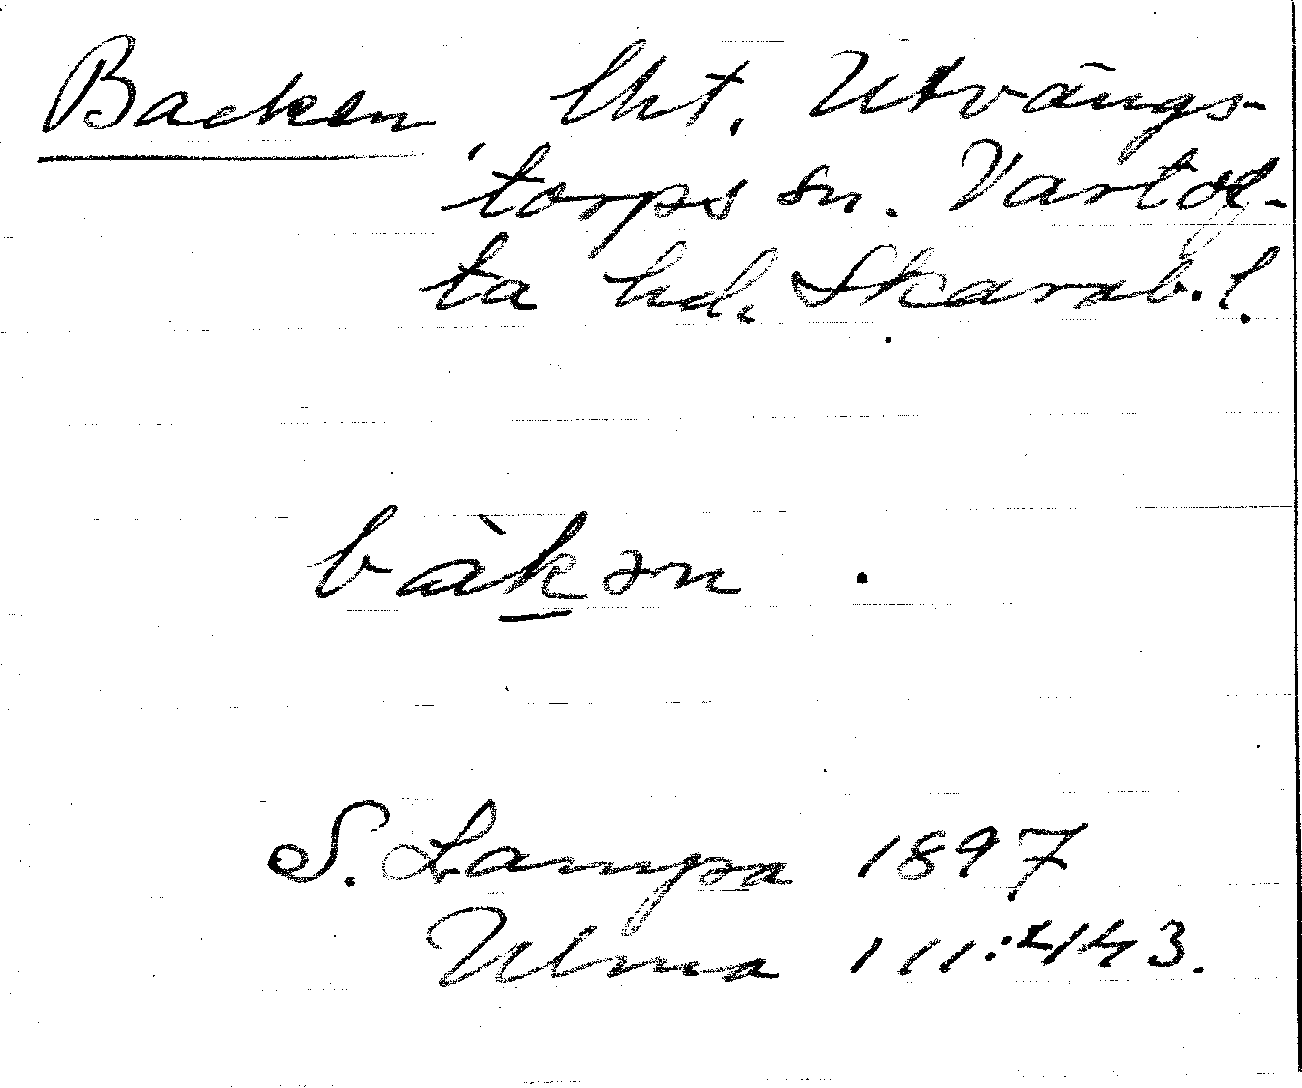 Backen, lht. Utvängs-
torps sn. Vartof-
ta hd. Skarab. l.
bàkən.
S. Lampa 1897
Ulma 111:443.